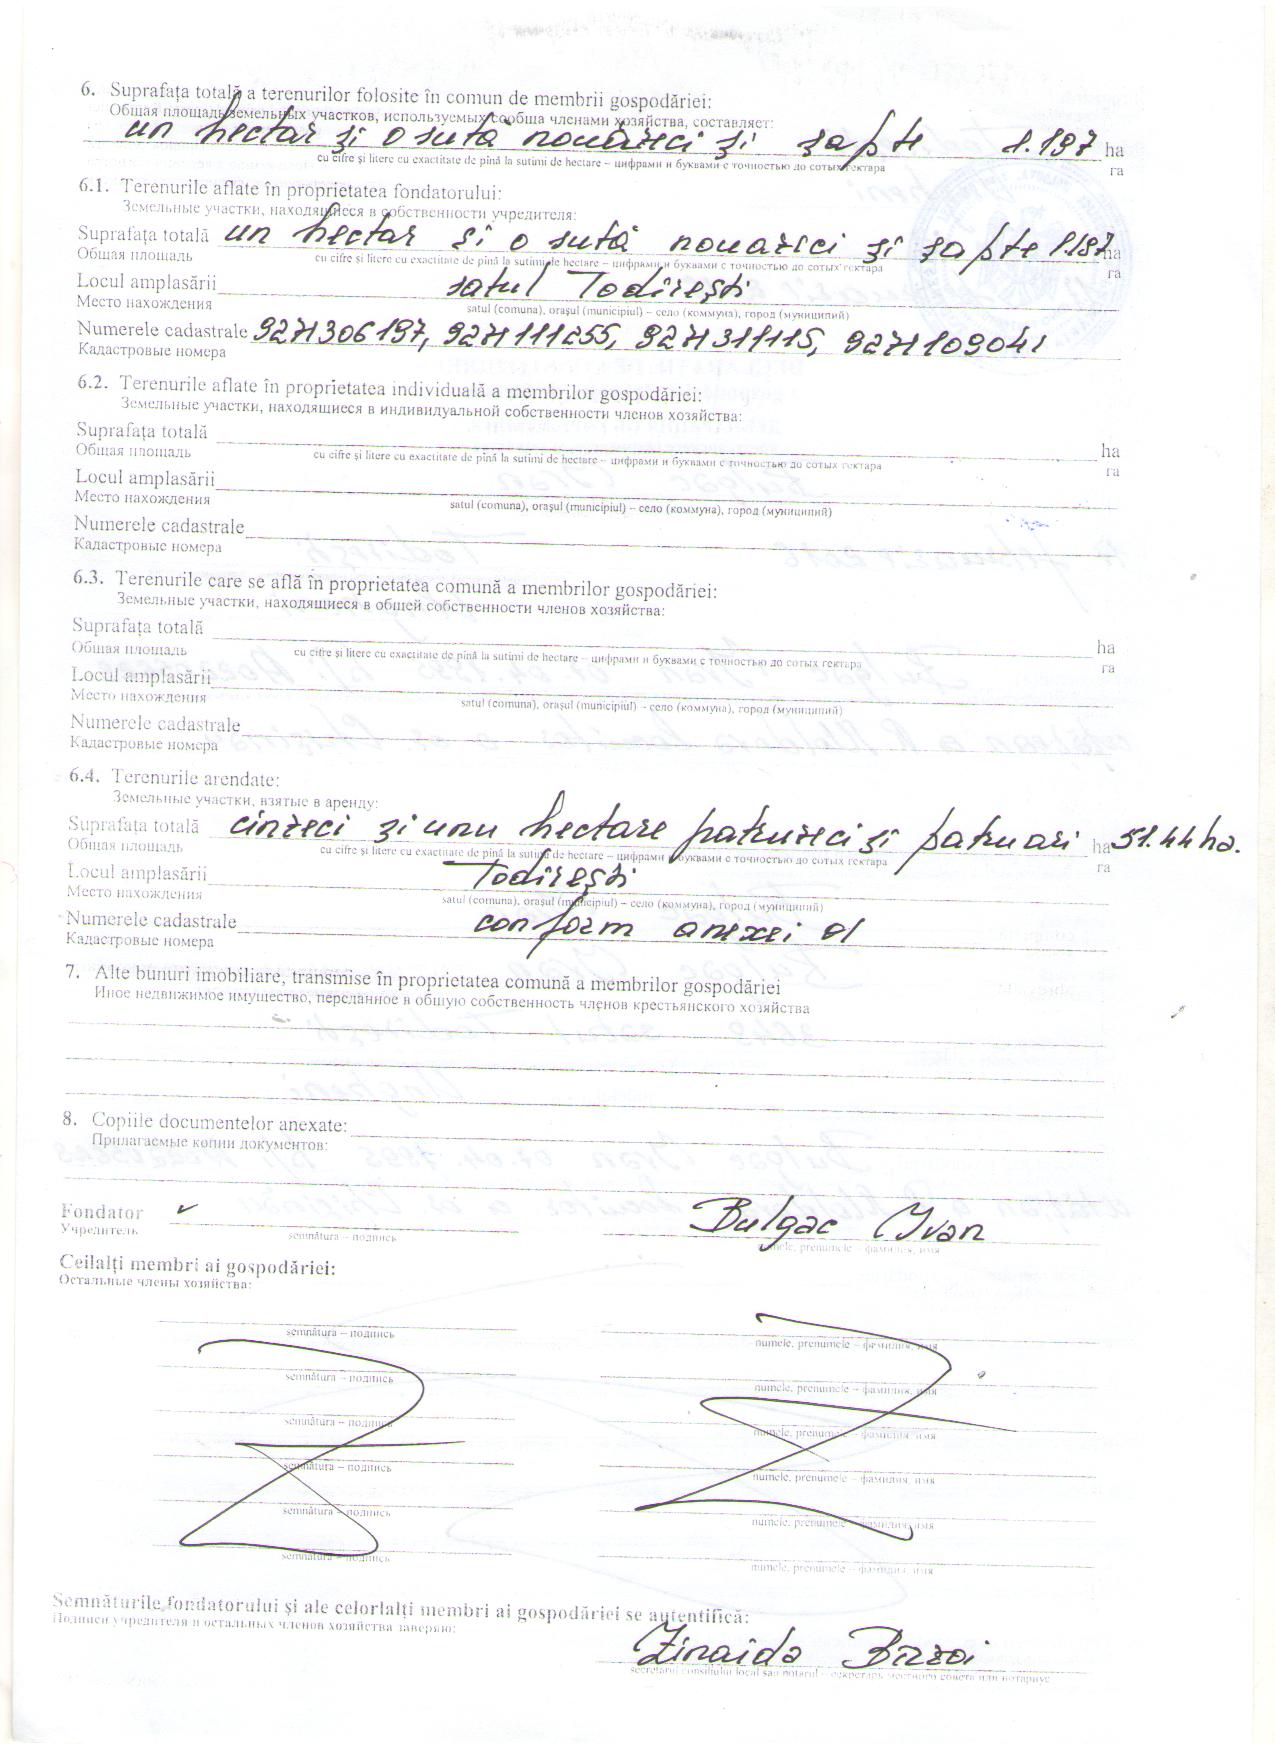 6. Suprafața totală a terenurilor folosite în comun de membrii gospodăriei:
Общая площадь земельных участков, используемых сообща членами хозяйства, составляет:
un hectar și o sută nouăzeci și șapte 1.197 ha
cu cifre și litere cu exactitate de pînă la sutimi de hectare – цифрами и буквами с точностью до сотых гектара га
6.1. Terenurile aflate în proprietatea fondatorului:
Земельные участки, находящиеся в собственности учредителя:
Suprafața totală un hectar și o sută nouazici și șapte 1.197 ha
Общая площадь cu cifre și litere cu exactitate de pînă la sutimi de hectare – цифрами и буквами с точностью до сотых гектара га
Locul amplasării satul Todirești
Место нахождения satul (comuna), orașul (municipiul) – село (коммуна), город (муниципий)
Numerele cadastrale 9271306197, 9271111255, 9271311115, 9271109041
Кадастровые номера
6.2. Terenurile aflate în proprietatea individuală a membrilor gospodăriei:
Земельные участки, находящиеся в индивидуальной собственности членов хозяйства:
Suprafața totală ha
Общая площадь cu cifre și litere cu exactitate de pînă la sutimi de hectare – цифрами и буквами с точностью до сотых гектара га
Locul amplasării
Место нахождения satul (comuna), orașul (municipiul) – село (коммуна), город (муниципий)
Numerele cadastrale
Кадастровые номера
6.3. Terenurile care se află în proprietatea comună a membrilor gospodăriei:
Земельные участки, находящиеся в общей собственности членов хозяйства:
Suprafața totală ha
Общая площадь cu cifre și litere cu exactitate de pînă la sutimi de hectare – цифрами и буквами с точностью до сотых гектара га
Locul amplasării
Место нахождения satul (comuna), orașul (municipiul) - село (коммуна), город (муниципий)
Numerele cadastrale
Кадастровые номера
6.4. Terenurile arendate:
Земельные участки, взятые в аренду:
Suprafața totală cinzeci și unu hectare patruzeci și patru ari ha 51.44 ha.
Общая площадь cu cifre și litere cu exactitate de pînă la sutimi de hectare – цифрами и буквами с точностью до сотых гектара га
Locul amplasării Todirești
Место нахождения satul (comuna), orașul (municipiul) – село (коммуна), город (муниципий)
Numerele cadastrale conform anexei
Кадастровые номера
7. Alte bunuri imobiliare, transmise în proprietatea comună a membrilor gospodăriei
Иное недвижимое имущество, переданное в общую собственность членов крестьянского хозяйства
8. Copiile documentelor anexate:
Прилагаемые копии документов:
Fondator v Bulgac Ivan
Учредитель semnătura – подпись numele, prenumele – фамилия, имя
Ceilalți membri ai gospodăriei:
Остальные члены хозяйства:
semnătura – подпись numele, prenumele – фамилия, имя
semnătura – подпись numele, prenumele – фамилия, имя
semnătura – подпись numele, prenumele – фамилия, имя
semnătura – подпись numele, prenumele – фамилия, имя
semnătura – подпись numele, prenumele – фамилия, имя
semnătura – подпись numele, prenumele – фамилия, имя
Semnăturile fondatorului și ale celorlalți membri ai gospodăriei se autentifică:
Подписи учредителя и остальных членов хозяйства заверяю:
Zinaida Bzzoi
secretarul consiliului local sau notarul – секретарь местного совета или нотариус